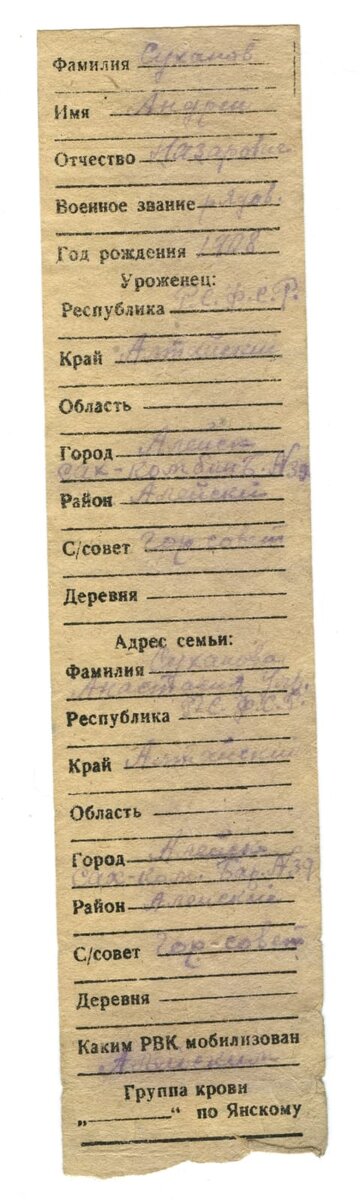 Фамилия Суханов
Имя Андрей
Отчество Назарович
Военное звание рядов.
Год рождения 1908
Уроженец:
Республика Р.С.Ф.С.Р.
Край Алтайский
Область
Город Алейск
сах-комбинт. №39
Район Алейский
С/совет Гор совет
Деревня
Адрес семьи:
Фамилия Суханова
Анастасия
Республика Р.С.Ф.С.Р.
Край Алтайский
Область
Город Алейск
сах-ком. Бар. №39
Район Алейский
С/совет Гор-совет
Деревня
Каким РВК мобилизован
Алейский
Группа крови
„ “ по Янскому